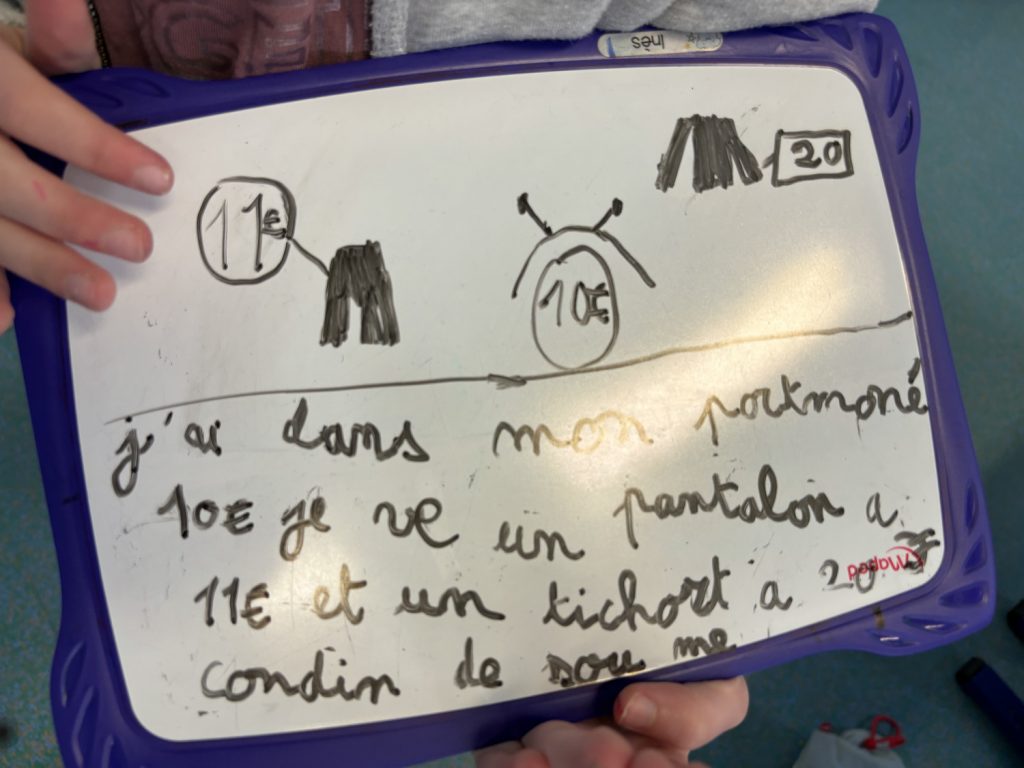 Inès
20
11€
10€
j'ai dans mon portmoné
10€ je ve un pantalon a
11€ et un tichort a 20 €
Maped
condin de sou me